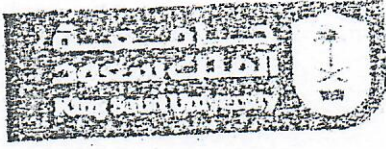 جامعة
الملك سعود
King Saud University